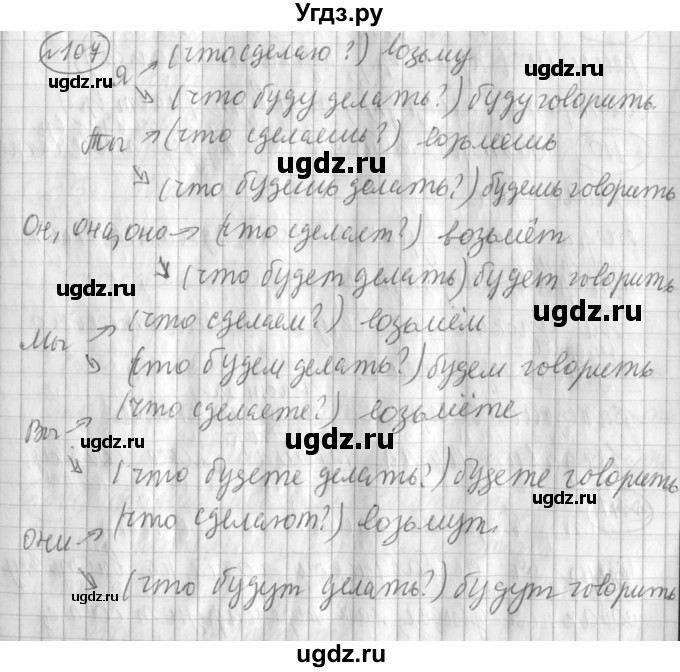 Угдз.ру
№107
Я → (что сделаю?) возьму
ugdz.ru
↘ (что буду делать?) буду говорить.
ugdz.ru
Ты → (что сделаешь?) возьмешь
ugdz.ru
↘ (что будешь делать?) будешь говорить
Он, она, оно → (что сделает?) возьмёт
↘ (что будет делать) будет говорить
ugdz.ru ugdz.ru
Мы → (что сделаем?) возьмём
ugdz.ru
↘ (что будем делать?) будем говорить
Вы → (что сделаете?) возьмёте
ugdz.ru ugdz.ru
↘ (что будете делать?) будете говорить
ugdz.ru
они → (что сделают?) возьмут.
ugdz.ru
↘ (что будут делать?) будут говорить
ugdz.ru
Угдз.ру